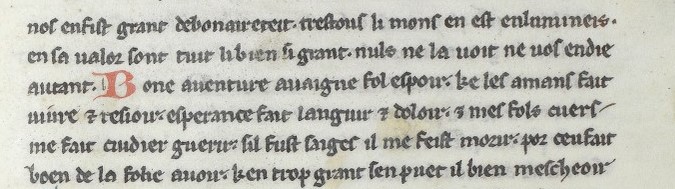 nos enfist grant debonaireteit· trestous li mons en est enlumineis·
en sa valor sont tuit li bien si grant· nuls ne la voit ne vos en die
autant· Bone aventure avaigne fol espoir· ke les amans fait
vivre & resioir· esperance fait languir & doloir· & mes fols cuers
me fait cuidier guerir· sil fust saiges il me feist morir· por ceu fait
boen de la folie avoir· ken trop grant sen puet il bien mescheoir